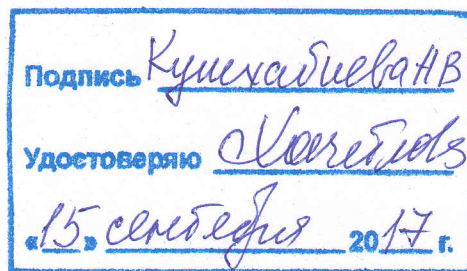 Подпись Кушхабиева АВ
Удостоверяю
«15» сентября 2017 г.